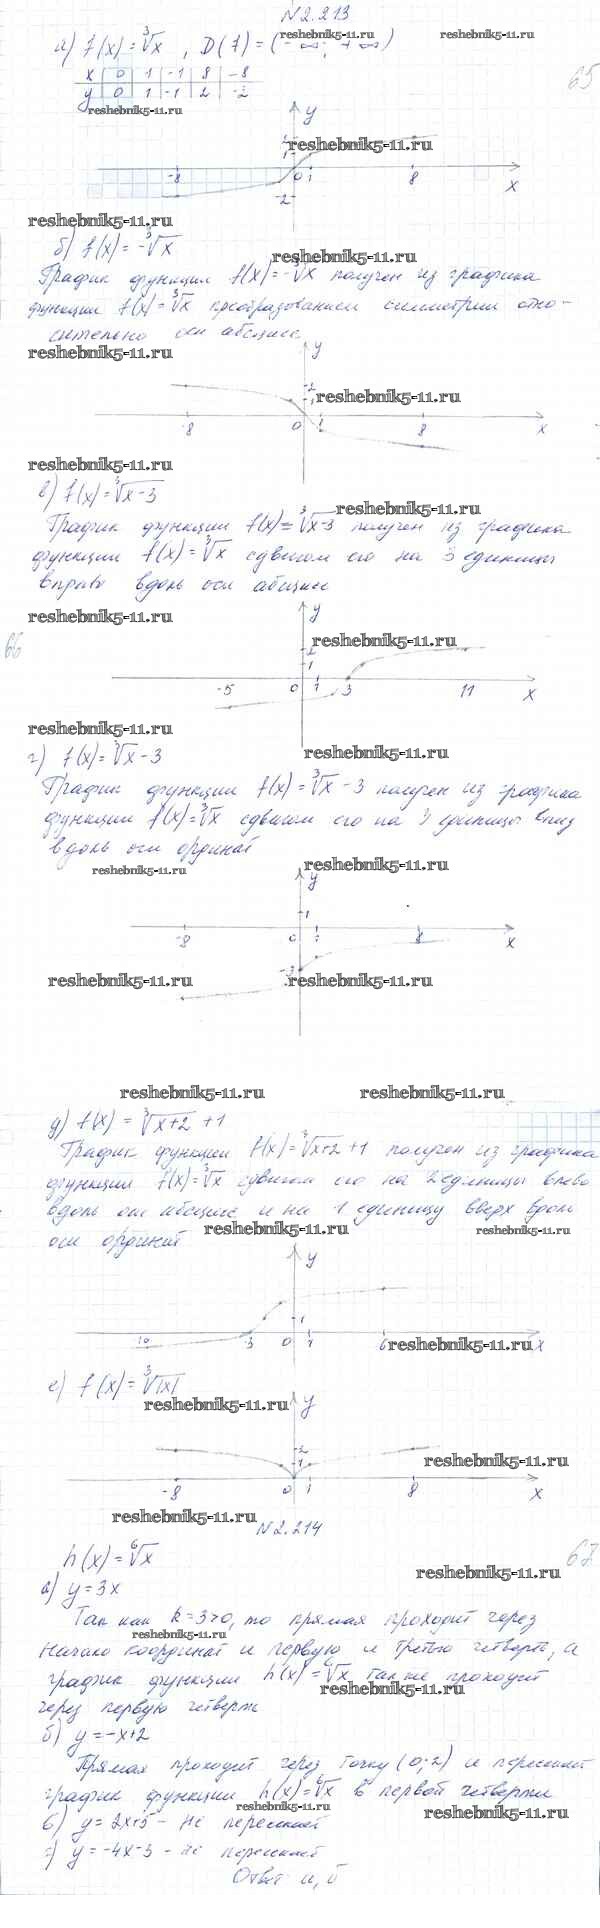 N 2.213
reshebnik5-11.ru reshebnik5-11.ru
а) f(x) = ∛x , D(f) = (-∞; +∞)
65
x 0 1 -1 8 -8
y 0 1 -1 2 -2
reshebnik5-11.ru
y
reshebnik5-11.ru
-8 0 1 8 x
-2
reshebnik5-11.ru reshebnik5-11.ru
б) f(x) = -∛x
График функции f(x) = -∛x получен из графика
функции f(x) = ∛x преобразованием симметрии отно-
сительно оси абсцисс.
reshebnik5-11.ru y
2
reshebnik5-11.ru
1
-8 0 1 8 x
reshebnik5-11.ru
в) f(x) = ∛x-3
reshebnik5-11.ru
График функции f(x) = ∛x-3 получен из графика
функции f(x) = ∛x сдвигом его на 3 единицы
вправо вдоль оси абсцисс
reshebnik5-11.ru y
66 reshebnik5-11.ru
2
1
-5 0 1 3 11 x
reshebnik5-11.ru
reshebnik5-11.ru
г) f(x) = ∛x - 3
График функции f(x) = ∛x - 3 получен из графика
функции f(x) = ∛x сдвигом его на 3 единицы вниз
вдоль оси ординат
reshebnik5-11.ru reshebnik5-11.ru
y
1
-8 0 1 8 x
-3
reshebnik5-11.ru reshebnik5-11.ru
reshebnik5-11.ru reshebnik5-11.ru
д) f(x) = ∛x+2 + 1
График функции f(x) = ∛x+2 + 1 получен из графика
функции f(x) = ∛x сдвигом его на 2 единицы влево
вдоль оси абсцисс и на 1 единицу вверх вдоль
reshebnik5-11.ru reshebnik5-11.ru
оси ординат
y
1
-10 -3 0 1 6 x
reshebnik5-11.ru
е) f(x) = ∛|x|
reshebnik5-11.ru
y
2
reshebnik5-11.ru
1
-8 0 1 8 x
reshebnik5-11.ru
N 2.214
h(x) = ⁶√x
67
reshebnik5-11.ru
а) y = 3x
Так как k = 3 > 0, то прямая проходит через
reshebnik5-11.ru
начало координат и первую и третью четверти, а
график функции h(x) = ⁶√x также проходит
reshebnik5-11.ru
через первую четверть
б) y = -x+2
Прямая проходит через точку (0; 2) и пересекает
график функции h(x) = ⁶√x в первой четверти
reshebnik5-11.ru reshebnik5-11.ru
в) y = 2x+5 - не пересекает
г) y = -4x-3 - не пересекает
Ответ: а, б